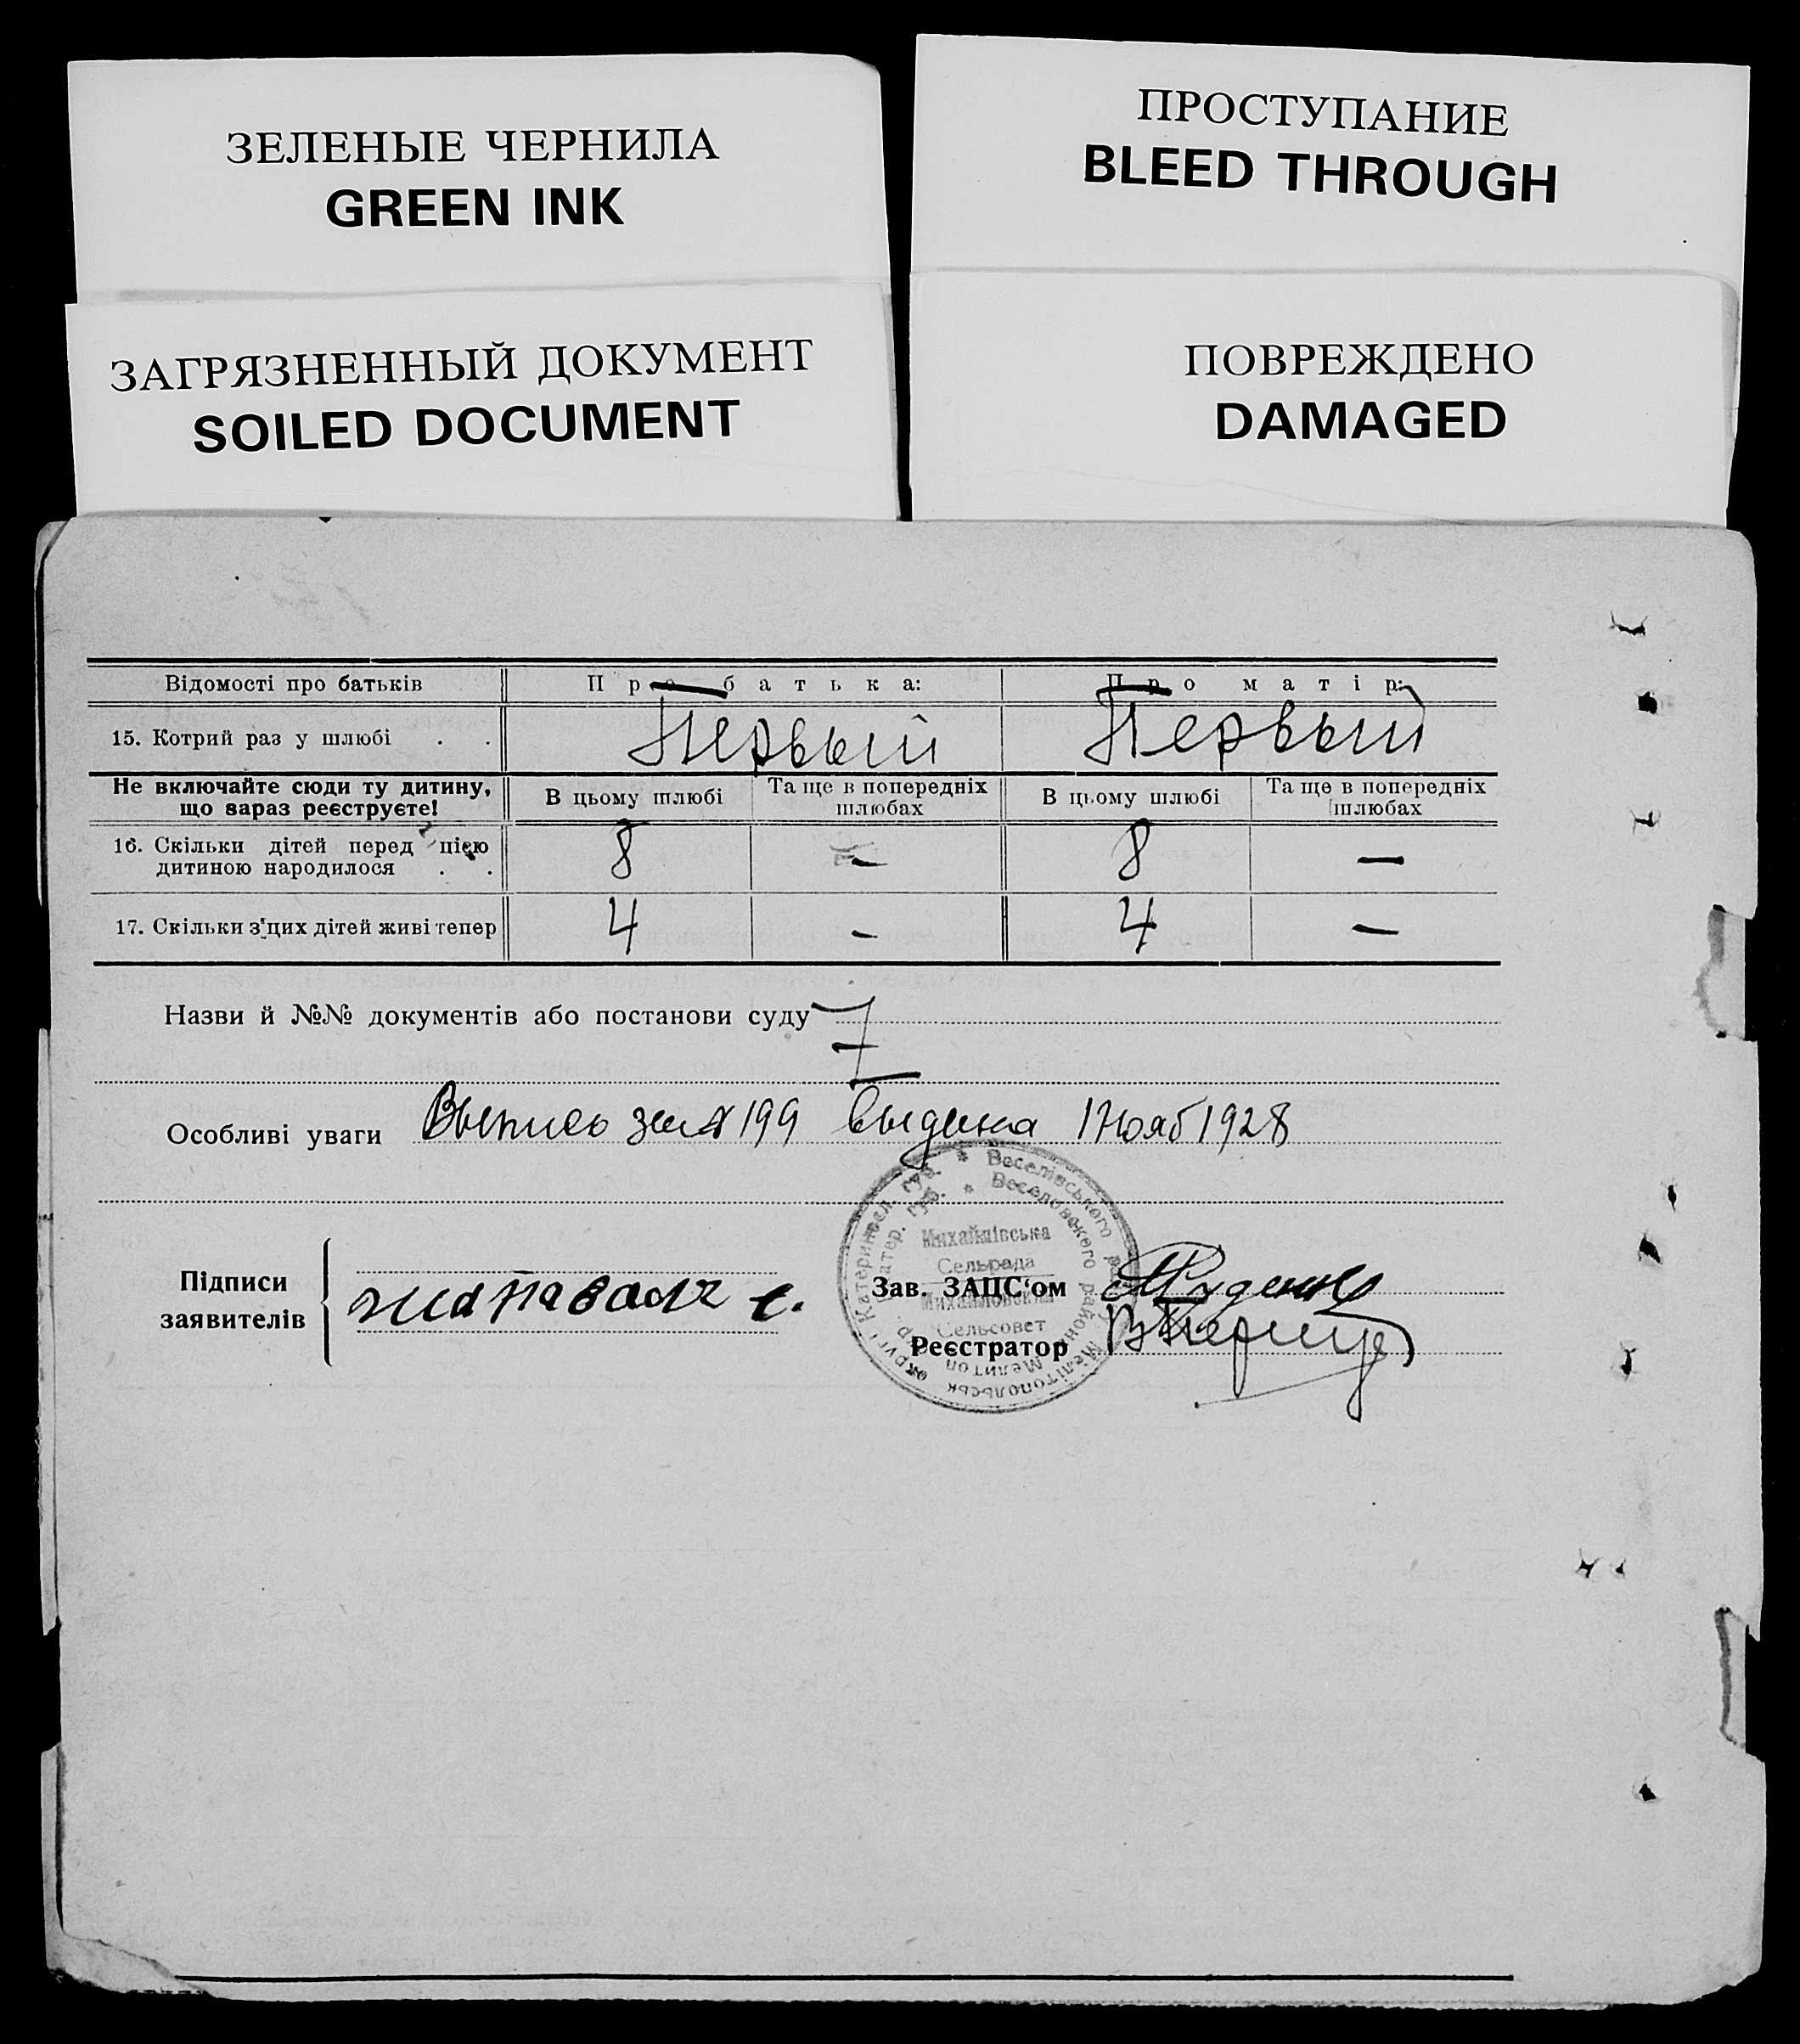 ЗЕЛЕНЫЕ ЧЕРНИЛА
GREEN INK
ПРОСТУПАНИЕ
BLEED THROUGH
ЗАГРЯЗНЕННЫЙ ДОКУМЕНТ
SOILED DOCUMENT
ПОВРЕЖДЕНО
DAMAGED
Відомості про батьків Про батька: Про матір:
15. Котрий раз у шлюбі . . Первый Первый
Не включайте сюди ту дитину, що зараз реєструєте! В цьому шлюбі Та ще в попередніх шлюбах В цьому шлюбі Та ще в попередніх шлюбах
16. Скільки дітей перед цією дитиною народилося . . 8 – 8 –
17. Скільки з'цих дітей живі тепер 4 – 4 –
Назви й №№ документів або постанови суду
Особливі уваги Выпись за № 199 выдана 1 Нояб 1928
Веселівського
Веселовского района
Михайлівська
Сельрада
Михайловский
Сельсовет
Підписи
заявителів
Зав. ЗАЦС'ом Руденко
Реєстратор